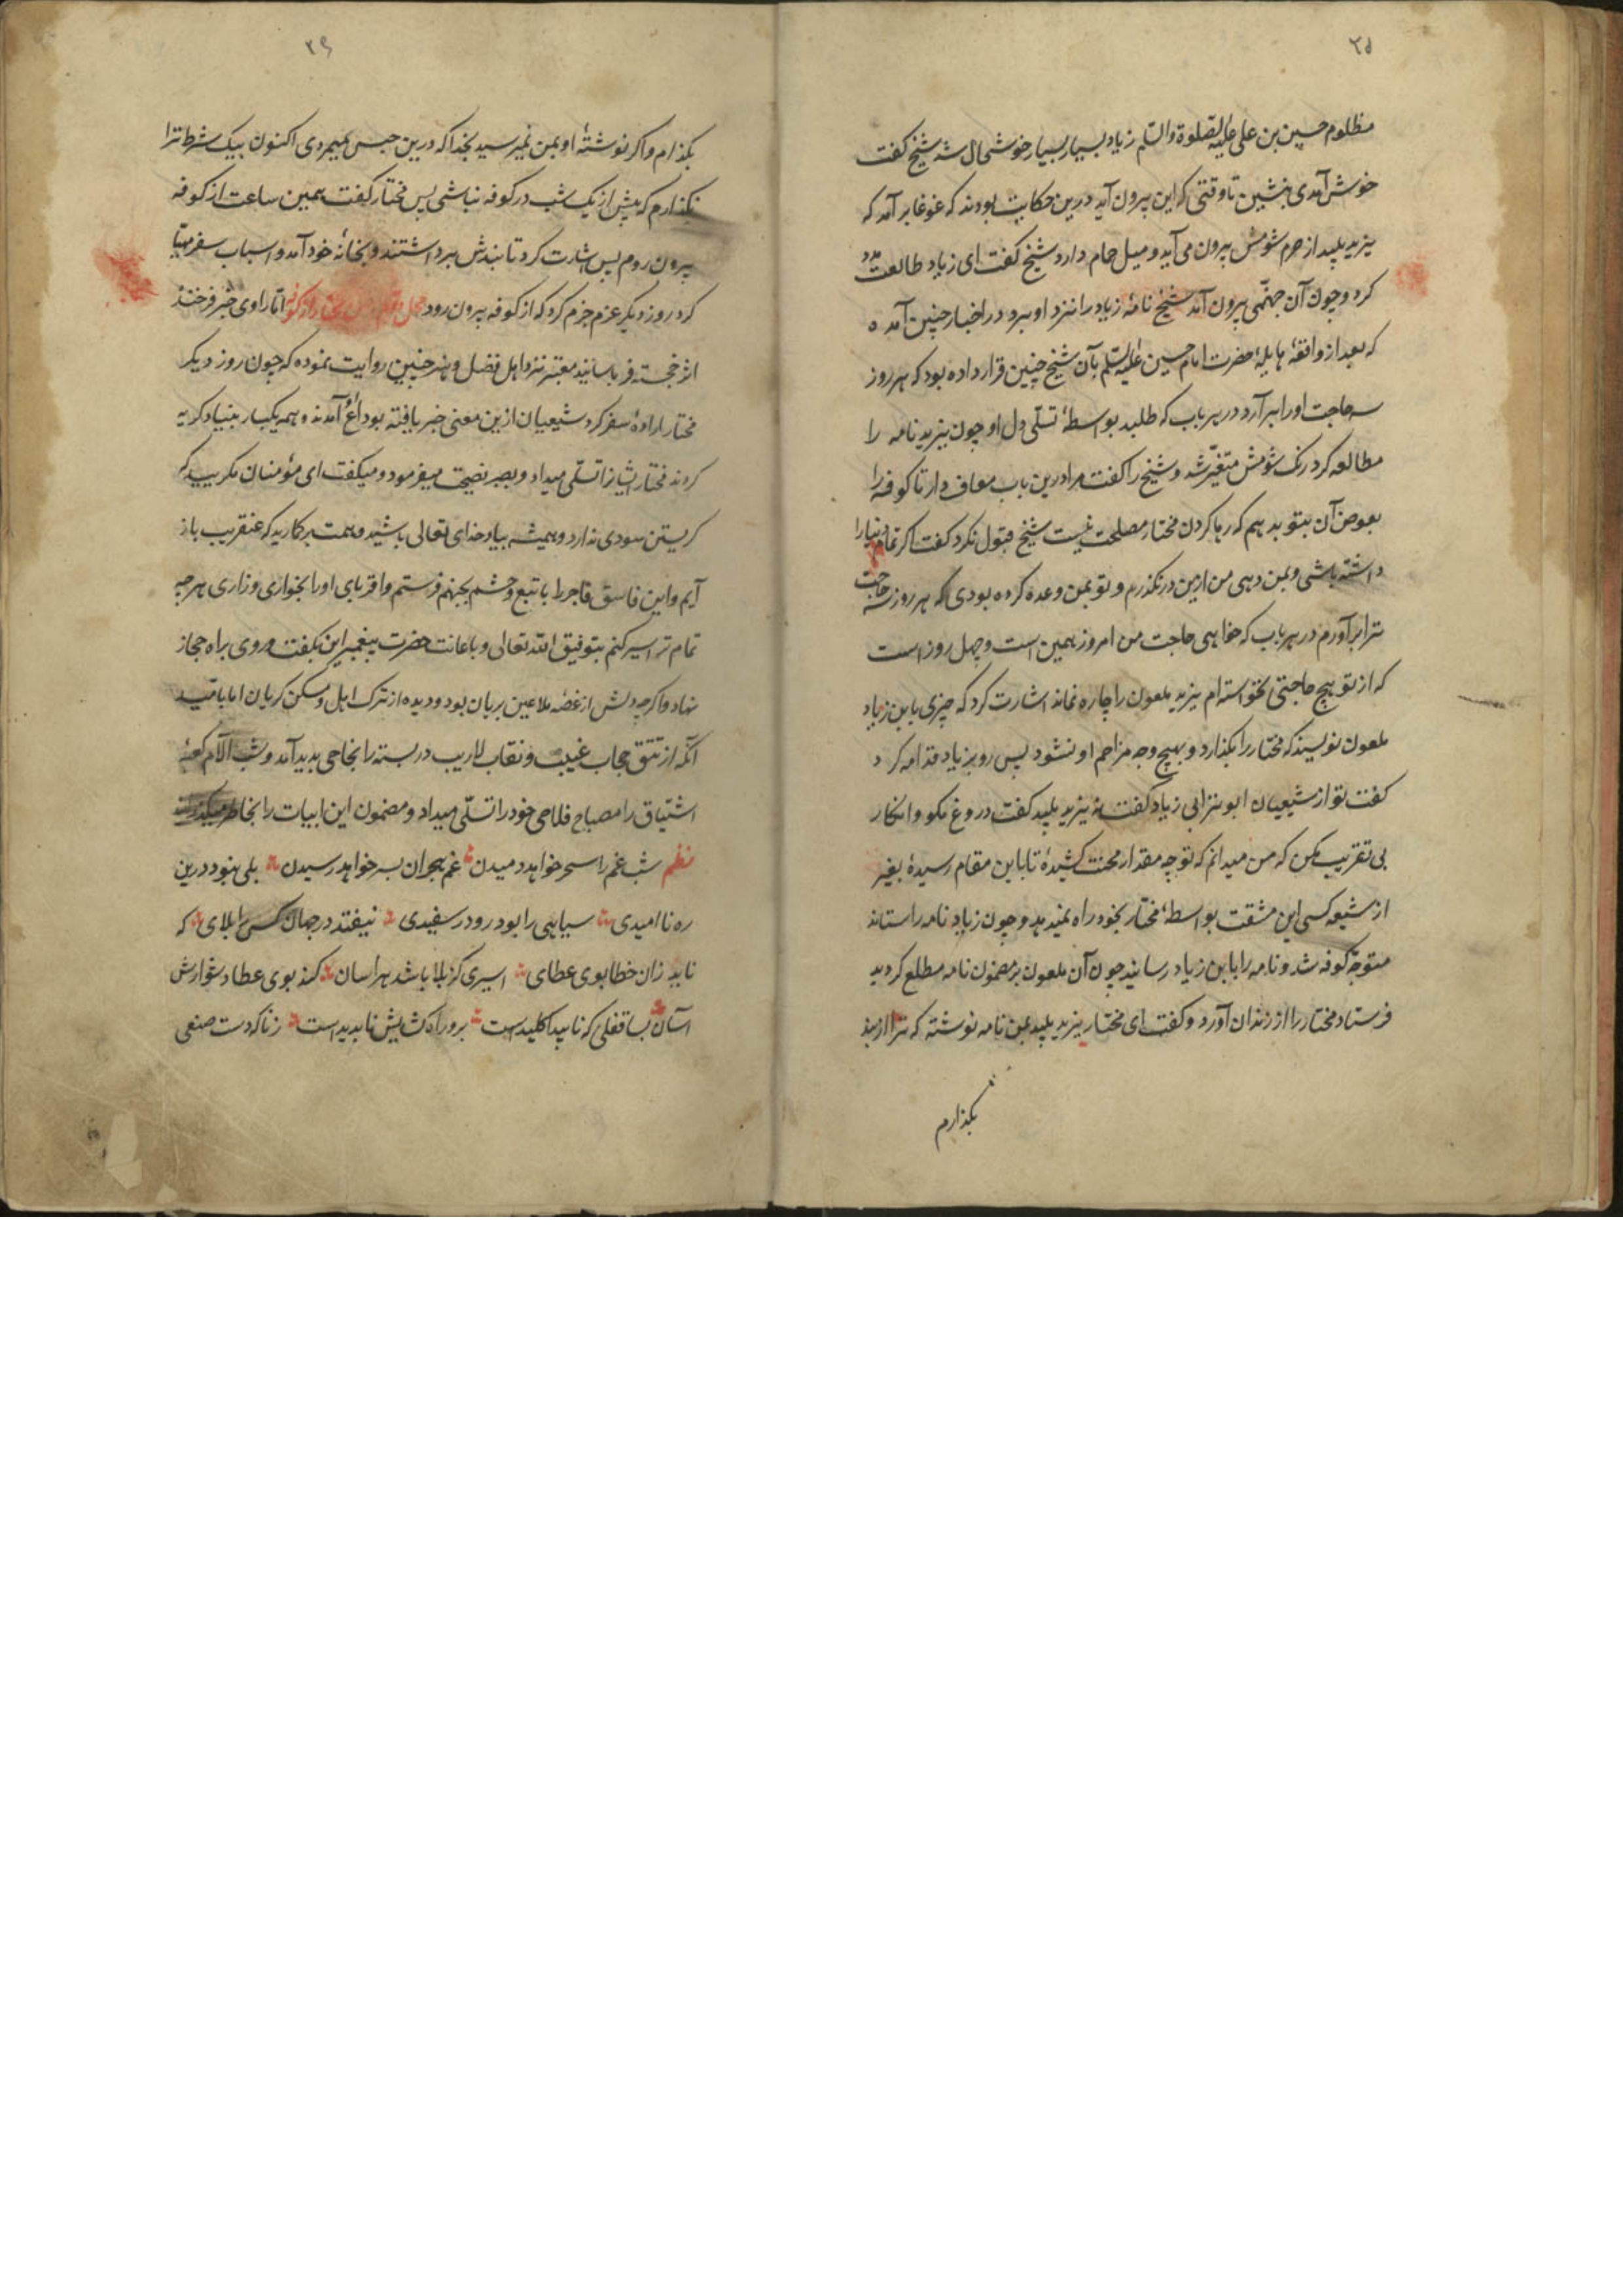 ۲۵
مظلوم حسین بن علی علیه الصلوة والسلم زیاد بسیار بسیار خوشحال شد شیخ کفت
خوش آمدی بنشین تا وقتی که این بیرون آید درین حکایت بودند که غوغا برآمد که
یزید پلید از حرم شومش بیرون می آید و میل حمام دارد شیخ کفت ای زیاد طالعت مدد
کرد و چون آن جهنّمی بیرون آمد شیخ نامهٔ زیاد را نزد او برد در اخبار چنین آمده
که بعد از واقعهٔ هایلهٔ حضرت امام حسین علیه السّلم بآن شیخ چنین قرار داده بود که هر روز
سه حاجت او را برآرد در هر باب که طلبد بواسطهٔ تسلّی دل او چون یزید نامه را
مطالعه کرد رنک شومش متغیّر شد و شیخ را کفت مرا درین باب معاف دار تا کوفه را
بعوض آن بتو بدهم که رها کردن مختار مصلحت نیست شیخ قبول نکرد کفت اکر تمام دنیا را
داشته باشی و بمن دهی من ازین درنکذرم و تو بمن وعده کرده بودی که هر روز سه حاجت
ترا برآورم در هر باب که خواهی حاجت من امروز همین است و چهل روز است
که از تو هیچ حاجتی نخواسته ام یزید ملعون را چاره نماند اشارت کرد که چیزی بابن زیاد
ملعون نویسند که مختار را بکذارد و بهیچ وجه مزاحم او نشود پس رو بزیاد قدامه کرد
کفت تو از شیعیان ابوترابی زیاد کفت نه یزید پلید کفت دروغ مکو و انکار
بی تقریب مکن که من میدانم که تو چه مقدار محنت کشیدهٔ تا باین مقام رسیدهٔ بغیر
از شیعه کسی این مشقت بواسطهٔ مختار بخود راه نمیدهد و چون زیاد نامه را ستاند
متوجّه کوفه شد و نامه را بابن زیاد رسانید چون آن ملعون بر مضمون نامه مطلع کردید
فرستاد مختار را از زندان آورد و کفت ای مختار یزید پلید بمن نامه نوشته که ترا از بند
بکذارم
۲۶
بکذارم و اکر نوشتهٔ او بمن نمیرسید بخدا که درین حبس میمردی اکنون بیک شرط ترا
بکذارم که پیش از یک شب در کوفه نباشی پس مختار کفت همین ساعت از کوفه
بیرون روم پس اشارت کرد تا بندش برداشتند و بخانهٔ خود آمد و اسباب سفر مهیّا
کرد روز دیکر عزم جزم کرد که از کوفه بیرون رود مختار از کوفه اما راوی خبر فرخنده
اثر خجسته فر باسانید معتبر نزد اهل فضل و هنر چنین روایت نموده که چون روز دیکر
مختار ارادهٔ سفر کرد شیعیان ازین معنی خبر یافته بوداع آمدند و همه یکبار بنیاد کریه
کردند مختار ایشانرا تسلّی میداد و بصبر نصیحت میفرمود و میکفت ای مؤمنان مکریید که
کریستن سودی ندارد و همیشه بیاد خدای تعالی باشید و همت بر کمارید که عنقریب باز
آیم و این فاسق فاجر را با تبع و حشم بجهنم فرستم و اقربای او را بخواری و زاری هر چه
تمام تر اسیر کنم بتوفیق الله تعالی و باعانت حضرت پیغمبر این بکفت و روی براه حجاز
نهاد و اکر چه دلش از غصّه ملاعین بریان بود و دیده از ترک اهل و مسکن کریان اما بامید
آنکه از تتق حجاب غیب و نقاب لاریب در بسته را نجاحی پدید آمد و شب آلام کعبهٔ
اشتیاق را مصباح فلاحی خود را تسلّی میداد و مضمون این ابیات را بخاطر میکذراند
نظم شب غم را سحر خواهد دمیدن غم هجران بسر خواهد رسیدن بلی نبود درین
ره ناامیدی سیاهی را بود رو در سفیدی نیفتد در جهان کس را بلای که
ناید زان خطا بوی عطای اسیری کز بلا باشد هراسان کند بوی عطا دشوارش
آسان بسا قفلی که ناپیدا کلید است برو راه کشایش ناپدید است زناکه دست صنعی